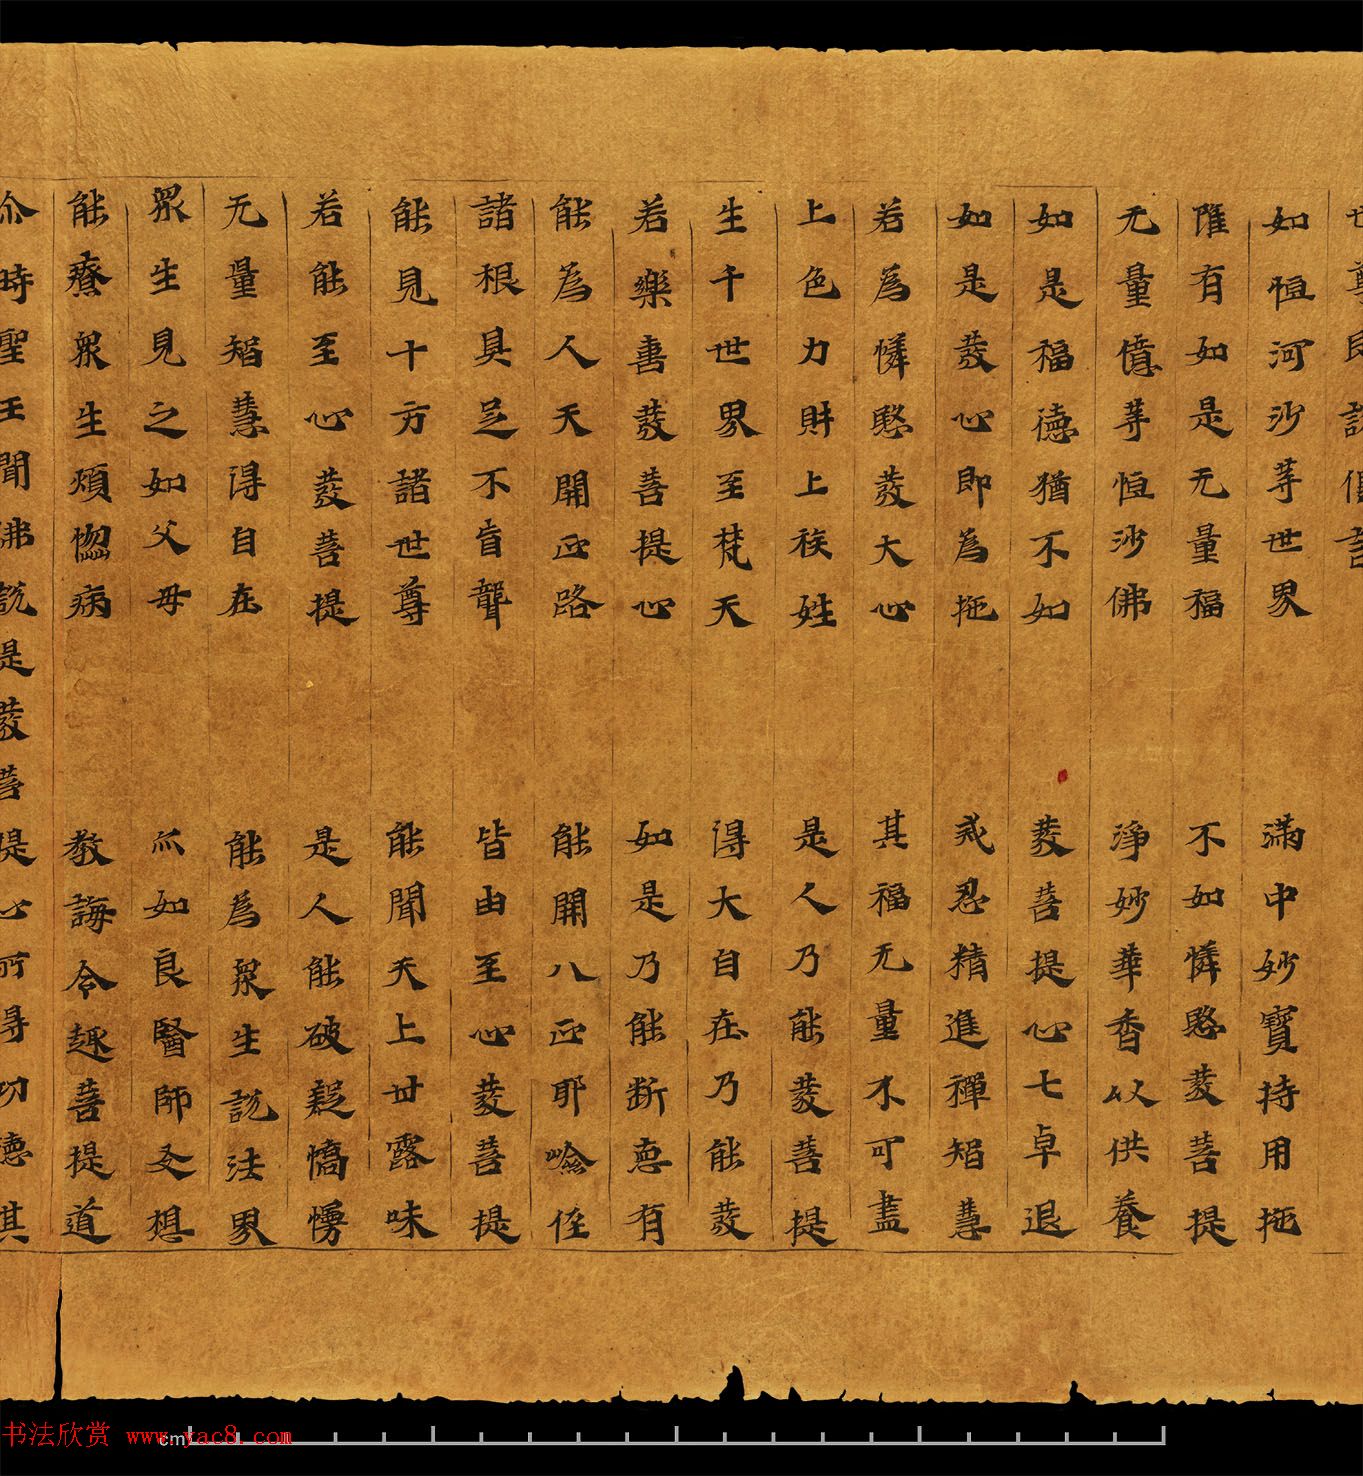 如恒河沙等世界 滿中妙寶持用施
唯有如是无量福 不如憐愍發菩提
无量憶等恒沙佛 淨妙華香以供養
如是福德猶不如 發菩提心七卓退
如是發心即為施 戒忍精進禪智慧
若為憐愍發大心 其福无量不可盡
上色力財上族姓 是人乃能發菩提
生千世界至梵天 得大自在乃能發
若樂善發菩提心 如是乃能断惡有
能為人天開正路 能開八正耶嶮徑
諸根具足不盲聾 皆由至心發菩提
能見十方諸世尊 能聞天上甘露味
若能至心發菩提 是人能破疑憍慢
无量智慧得自在 能為眾生說法界
眾生見之如父母 亦如良醫師友想
能療眾生煩惱病 教誨令趣菩提道
尒時聖王聞佛說是發菩提心所得功德其
书法欣赏 www.yac8.com
cm